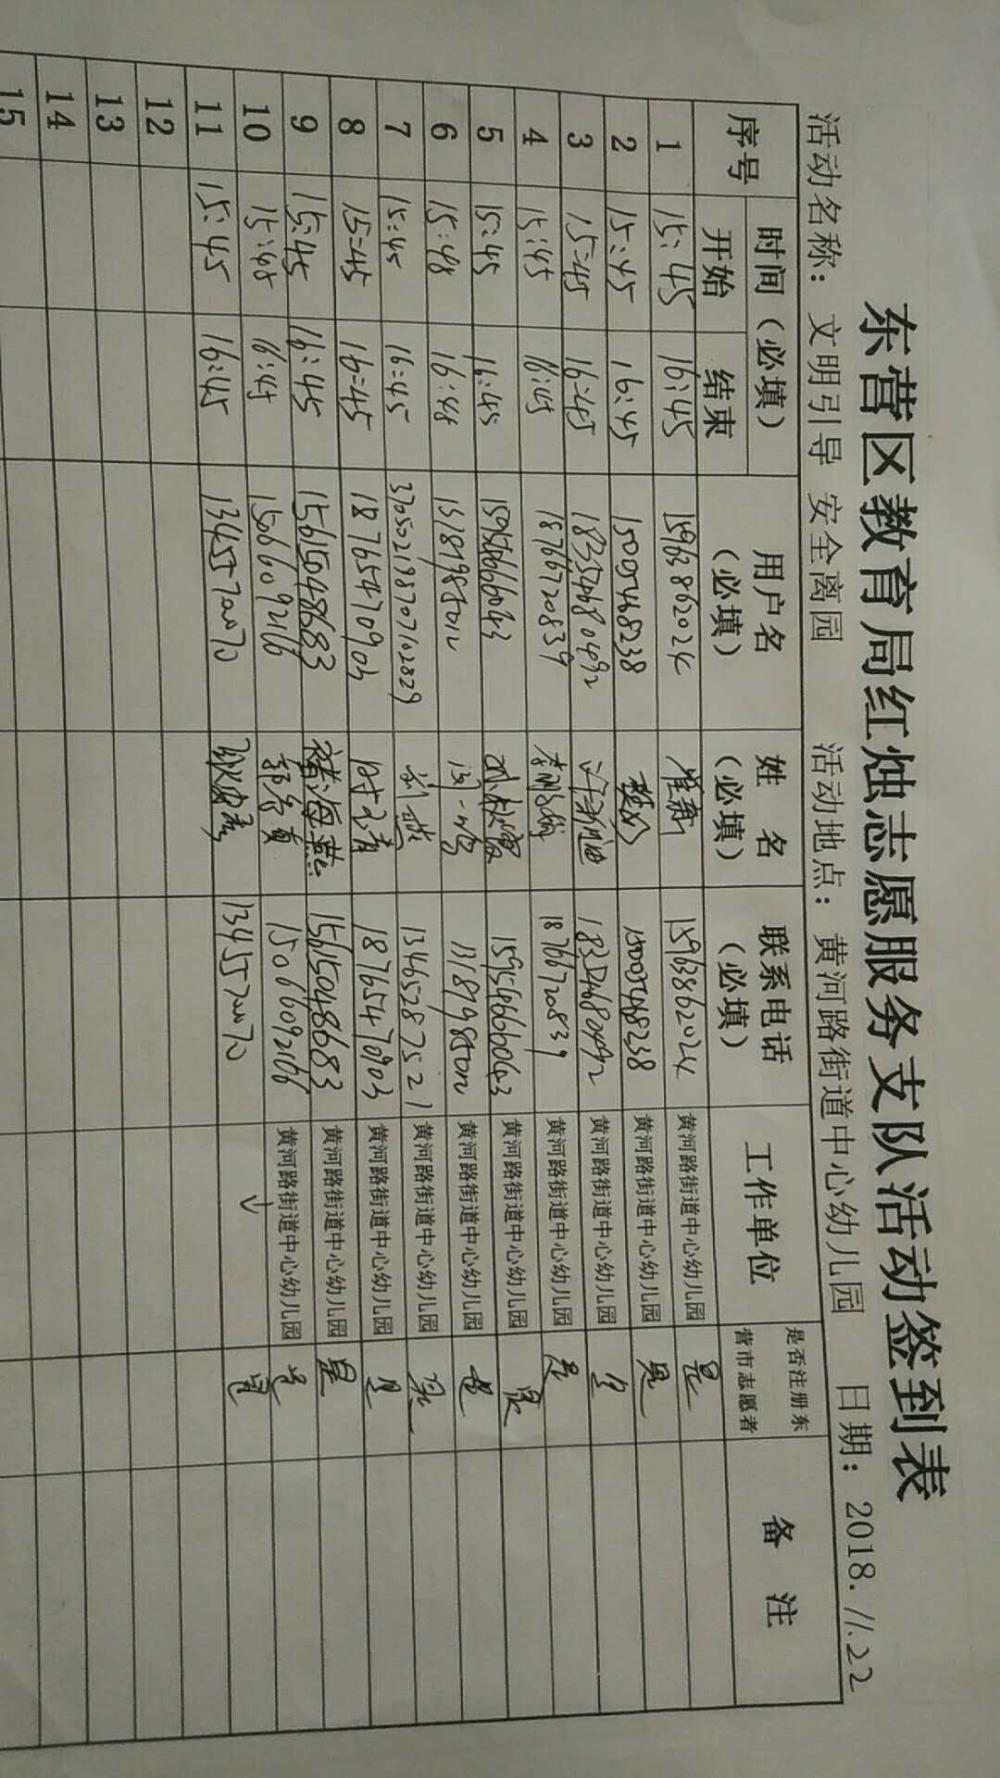 东营区教育局红烛志愿服务支队活动签到表
活动名称：文明引导 安全离园 活动地点：黄河路街道中心幼儿园 日期：2018.11.22
序号 时间（必填） 用户名（必填） 姓 名（必填） 联系电话（必填） 工作单位 是否注册东营市志愿者 备 注
开始 结束
1 15:45 16:45 15963862024 崔静 15963862024 黄河路街道中心幼儿园 是
2 15:45 16:45 15005468238 15005468238 黄河路街道中心幼儿园 是
3 15:45 16:45 18354680492 18354680492 黄河路街道中心幼儿园
4 15:45 16:45 18766720839 18766720839 黄河路街道中心幼儿园 是
5 15:45 16:45 15954666043 15954666043 黄河路街道中心幼儿园 是
6 15:48 16:48 13181985012 13181985012 黄河路街道中心幼儿园 是
7 15:45 16:45 370502198707102829 刘燕 13465287521 黄河路街道中心幼儿园 是
8 15:45 16:45 18765470903 时元青 18765470903 黄河路街道中心幼儿园 是
9 15:45 16:45 15615048683 褚海燕 15615048683 黄河路街道中心幼儿园 是
10 15:45 16:45 15066092166 15066092166 黄河路街道中心幼儿园 是
11 15:45 16:45 13455720070 13455720070 是
12
13
14
15